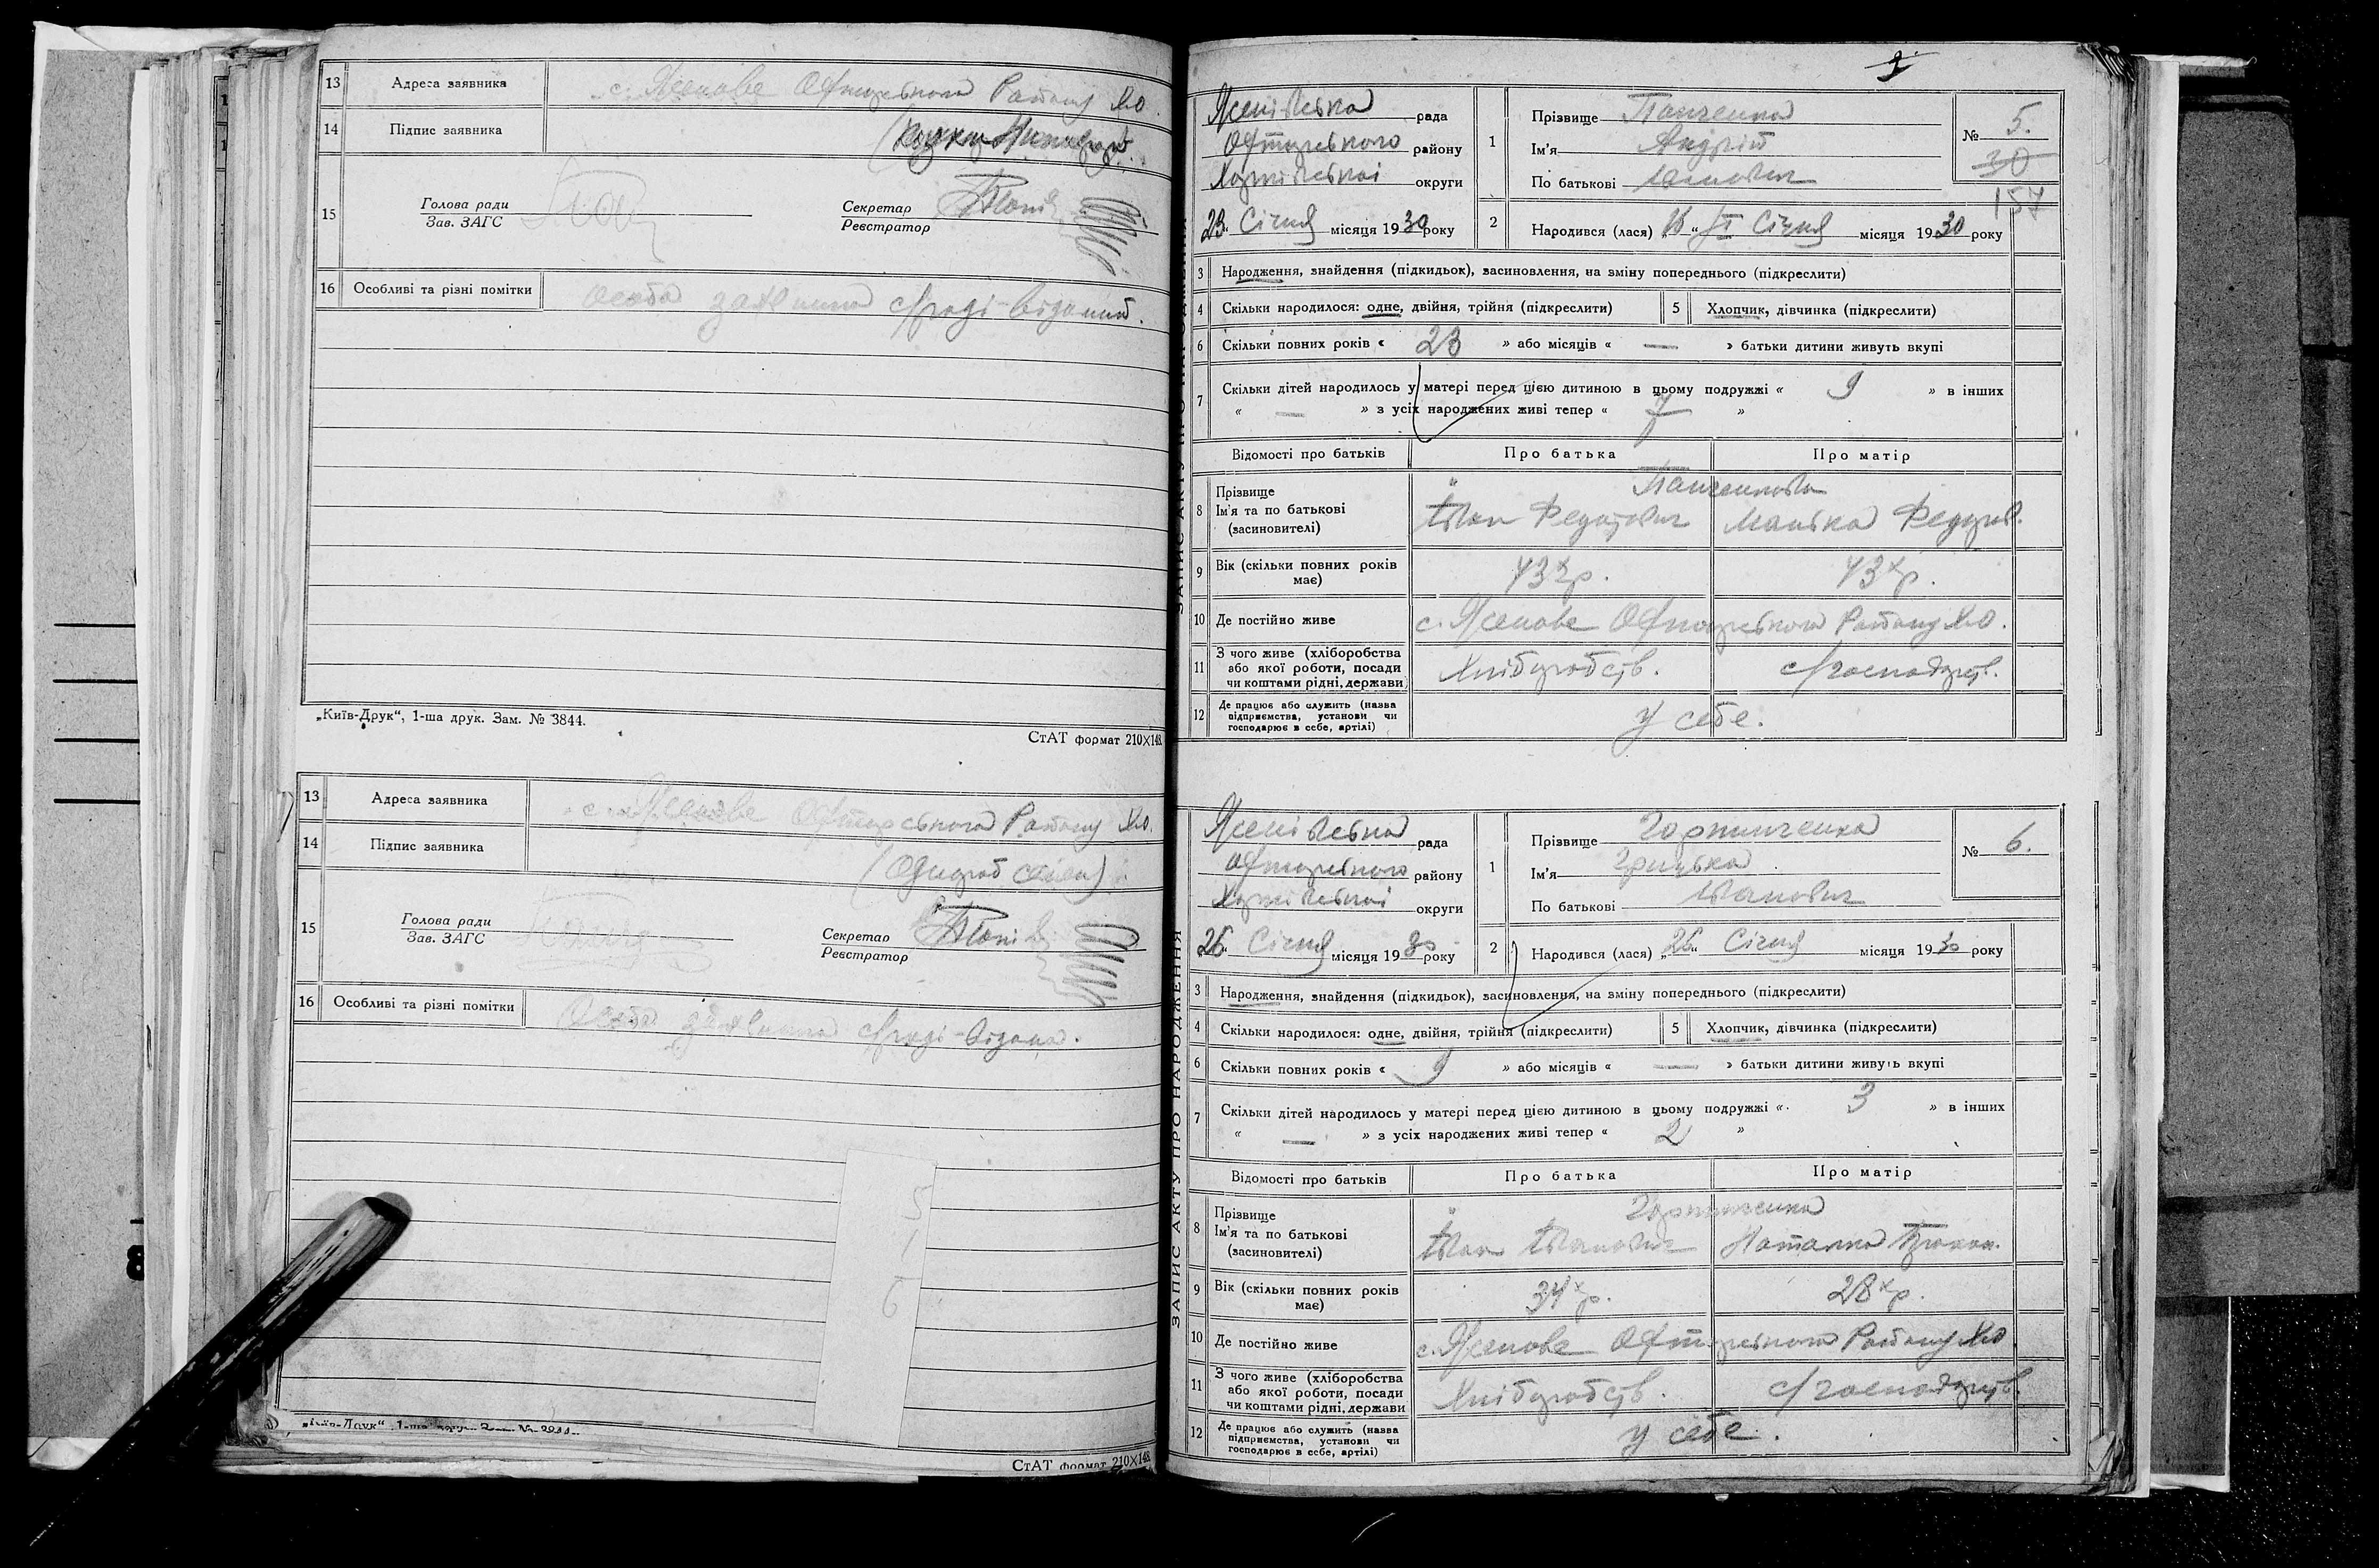 13 Адреса заявника с. Ясенове Охтирського Району Х.О.
14 Підпис заявника
15 Голова ради
Зав. ЗАГС
Секретар
Реєстратор
16 Особливі та різні помітки Особа заявника с/раді-відомий.
„Київ-Друк“, 1-ша друк. Зам. № 3844.
СтАТ формат 210×148
13 Адреса заявника с. Ясенове Охтирського Району Х.О.
14 Підпис заявника
15 Голова ради
Зав. ЗАГС
Секретар
Реєстратор
16 Особливі та різні помітки Особа заявника с/раді-відома.
5
1
6
СтАТ формат 210×148
ЗАПИС АКТУ ПРО НАРОДЖЕННЯ
Ясенівська рада
Охтирського району
Харківської округи
23 Січня місяця 1930 року
1 Прізвище Панченко
Ім'я Андрій
По батькові Іванович
№ 5.
30
157
2 Народився (лася) „16“ Січня місяця 1930 року
3 Народження, знайдення (підкидьок), засиновлення, на зміну попереднього (підкреслити)
4 Скільки народилося: одне, двійня, трійня (підкреслити) 5 Хлопчик, дівчинка (підкреслити)
6 Скільки повних років « 23 » або місяців « — » батьки дитини живуть вкупі
7 Скільки дітей народилось у матері перед цією дитиною в цьому подружжі « 9 » в інших
« — » з усіх народжених живі тепер « 7 »
Відомості про батьків Про батька Про матір
8 Прізвище
Ім'я та по батькові
(засиновителі)
Панченкови
Іван Федорович Манька Федоров.
9 Вік (скільки повних років має) 43 х р. 43 х р.
10 Де постійно живе с. Ясенове Охтирського Району Х.О.
11 З чого живе (хліборобства
або якої роботи, посади
чи коштами рідні, держави) Хліборобств. с/господарств.
12 Де працює або служить (назва
підприємства, установи чи
господарює в себе, артілі) У себе.
ЗАПИС АКТУ ПРО НАРОДЖЕННЯ
Ясенівська рада
Охтирського району
Харківської округи
26 Січня місяця 1930 року
1 Прізвище Горпинченко
Ім'я Грицько
По батькові Іванович
№ 6.
2 Народився (лася) „26“ Січня місяця 1930 року
3 Народження, знайдення (підкидьок), засиновлення, на зміну попереднього (підкреслити)
4 Скільки народилося: одне, двійня, трійня (підкреслити) 5 Хлопчик, дівчинка (підкреслити)
6 Скільки повних років « 9 » або місяців « — » батьки дитини живуть вкупі
7 Скільки дітей народилось у матері перед цією дитиною в цьому подружжі « 3 » в інших
« — » з усіх народжених живі тепер « 2 »
Відомості про батьків Про батька Про матір
8 Прізвище
Ім'я та по батькові
(засиновителі)
Горпинченко
Іван Іванович Наталка Прокоп.
9 Вік (скільки повних років має) 34 х р. 28 х р.
10 Де постійно живе с. Ясенове Охтирського Району Х.О.
11 З чого живе (хліборобства
або якої роботи, посади
чи коштами рідні, держави Хліборобств. с/господарств.
12 Де працює або служить (назва
підприємства, установи чи
господарює в себе, артілі) У себе.